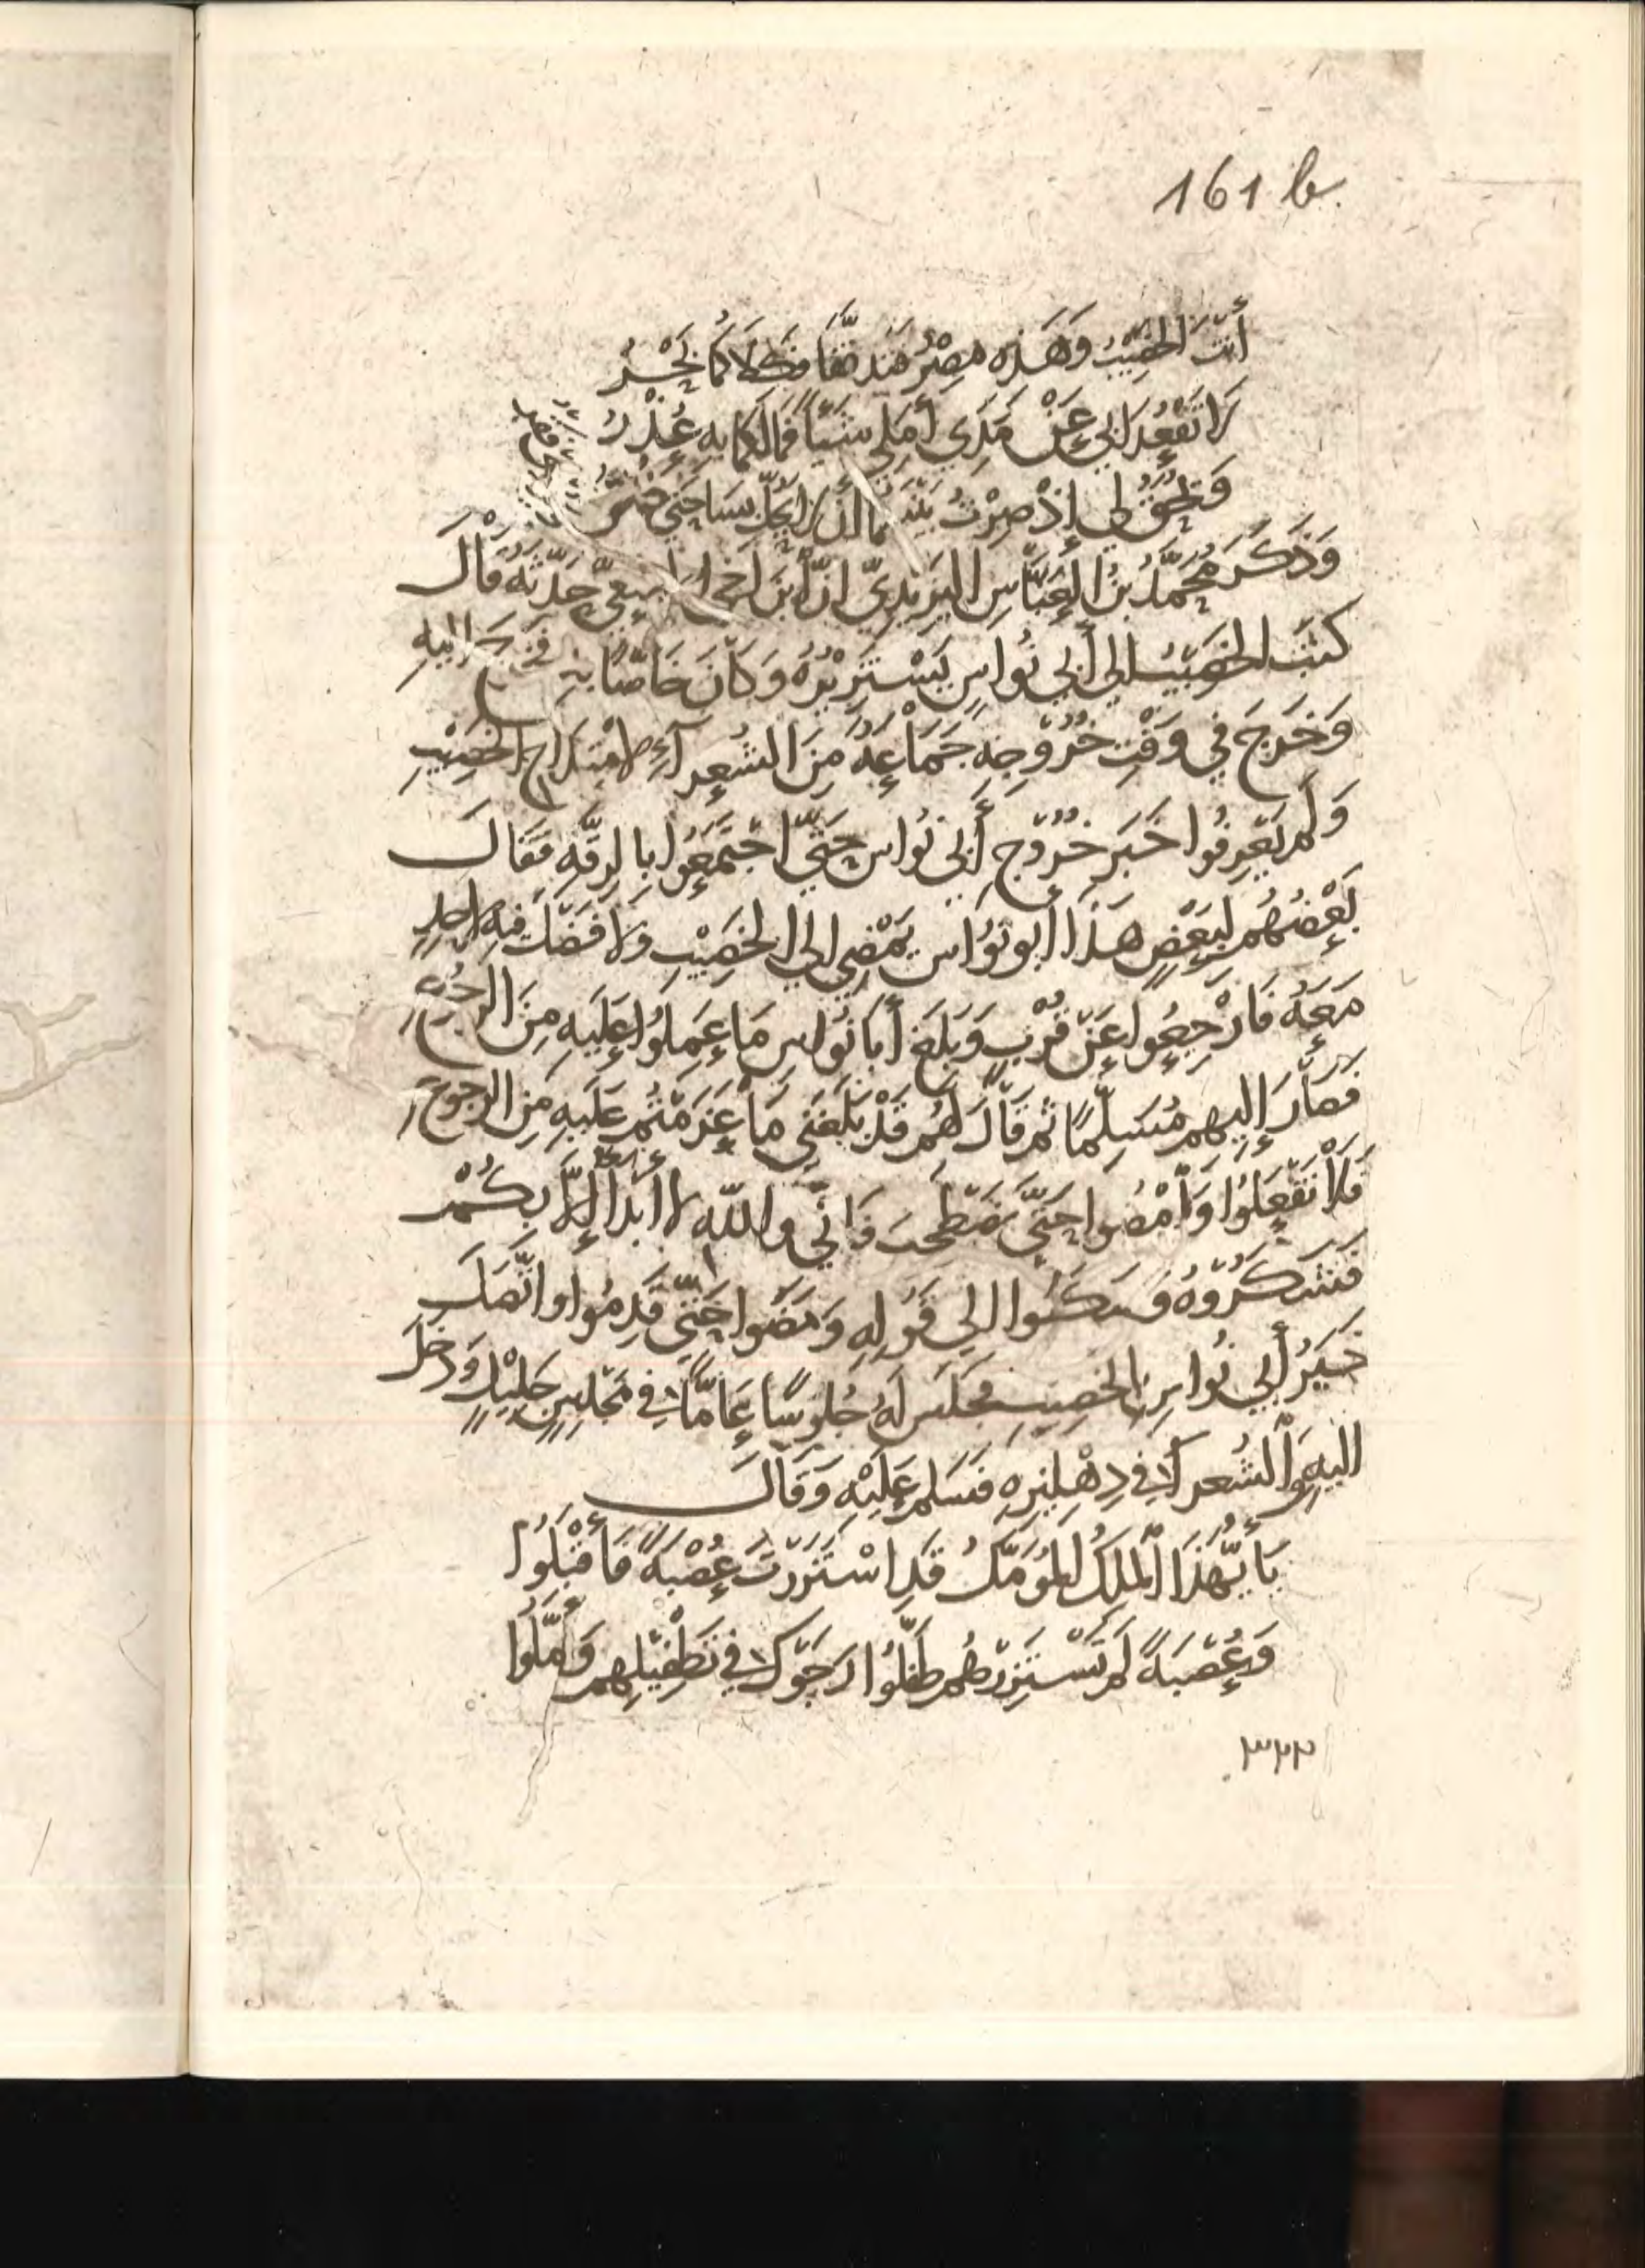 161 b
أَنْتَ الخَصِيْبُ وَهَذِهِ مِصْرُ فَتَدَفَّقَا فَكِلَاكُمَا بَحْرُ
لَا تَقْعُدَا بِي عَنْ مَدَى أَمَلِي شَيْئًا فَمَا لَكُمَا بِهِ عُذْرُ
وَيَحُقُّ لِي إِذْ صِرْتُ بَيْنَكُمَا أَنْ لَا يَحُلَّ بِسَاحَتِي فَقْرُ
وَذَكَرَ مُحَمَّدُ بْنُ العَبَّاسِ اليَزِيْدِيّ أنّ ابنَ أخي الأصمعيّ حَدَّثَهُ قَالَ
كتبَ الخصيبُ إلى أبي نُواسٍ يَسْتَزِيْرُهُ وَكَانَ خَاصًّا بِهِ فخرجَ إليهِ
وَخَرَجَ في وَقْتِ خُرُوجِهِ جَمَاعَةٌ مِنَ الشُعراءِ لامْتِداحِ الخَصِيْبِ
وَلَم يَعْرِفُوا خَبَرَ خُرُوجِ أَبِي نُواسٍ حَتَّى اجْتَمَعُوا بِالرقَّةِ فَقَالَ
بَعْضُهُم لِبَعْضٍ هَذَا أَبُو نُوَاسٍ يَمْضِي إلى الخَصِيْبِ وَلَا فَضْلَ فِيهِ لأحدٍ
مَعَهُ فَارْجِعُوا عَنْ قُرْبٍ وَبَلَغَ أَبَا نُوَاسٍ مَا عَمِلُوا عَلَيهِ مِنَ الرجُوعِ
فَصَارَ إِلَيهِم مُسَلِّمًا ثم قَالَ لَهُم قَدْ بَلَغَنِي مَا عَزَمْتُم عَلَيهِ مِنَ الرجوعِ
فَلَا تَفْعَلُوا وَامْضُوا حَتَّى نَصْطَحِبَ فَإنِّي واللهِ لا أبدأ إِلَّا بِكُمْ
فَشَكَرُوهُ وَسَكَنُوا إلى قَولِهِ وَمَضَوا حَتَّى قَدِمُوا واتَّصَلَ
خَبَرُ أَبي نُواسٍ بالخصِيبِ فَجَلَسَ لَهُ جُلوسًا عَامًّا في مَجْلِسٍ جَلِيْلٍ وَدَخَلَ
إليهِ والشُعراء في دِهْلِيزِهِ فَسَلم عَلَيْهِ وَقَالَ
يَا أَيُّهَذَا المَلِكُ المُؤَمَّلُ قَدِ اسْتَزَرْتَ عُصْبَةً فَأَقْبَلُوا
وَعُصْبَةً لَم تَسْتَزِرْهُم طَفَّلُوا رَجَوكَ في تَطْفِيْلِهِم وَأَمَّلُوا
٣٢٢